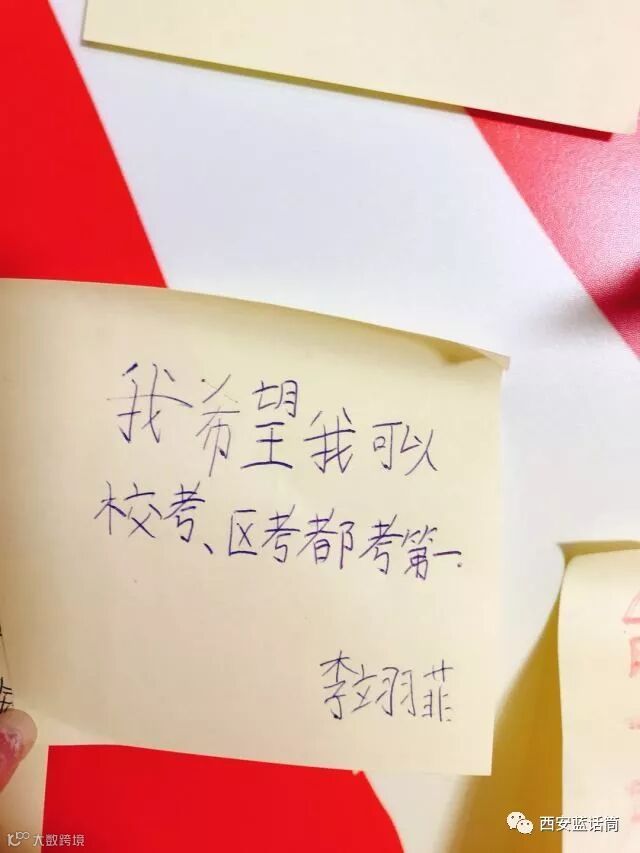 我希望我可以
校考、区考都考第一.
李翊菲
西安蓝话筒
大数跨境